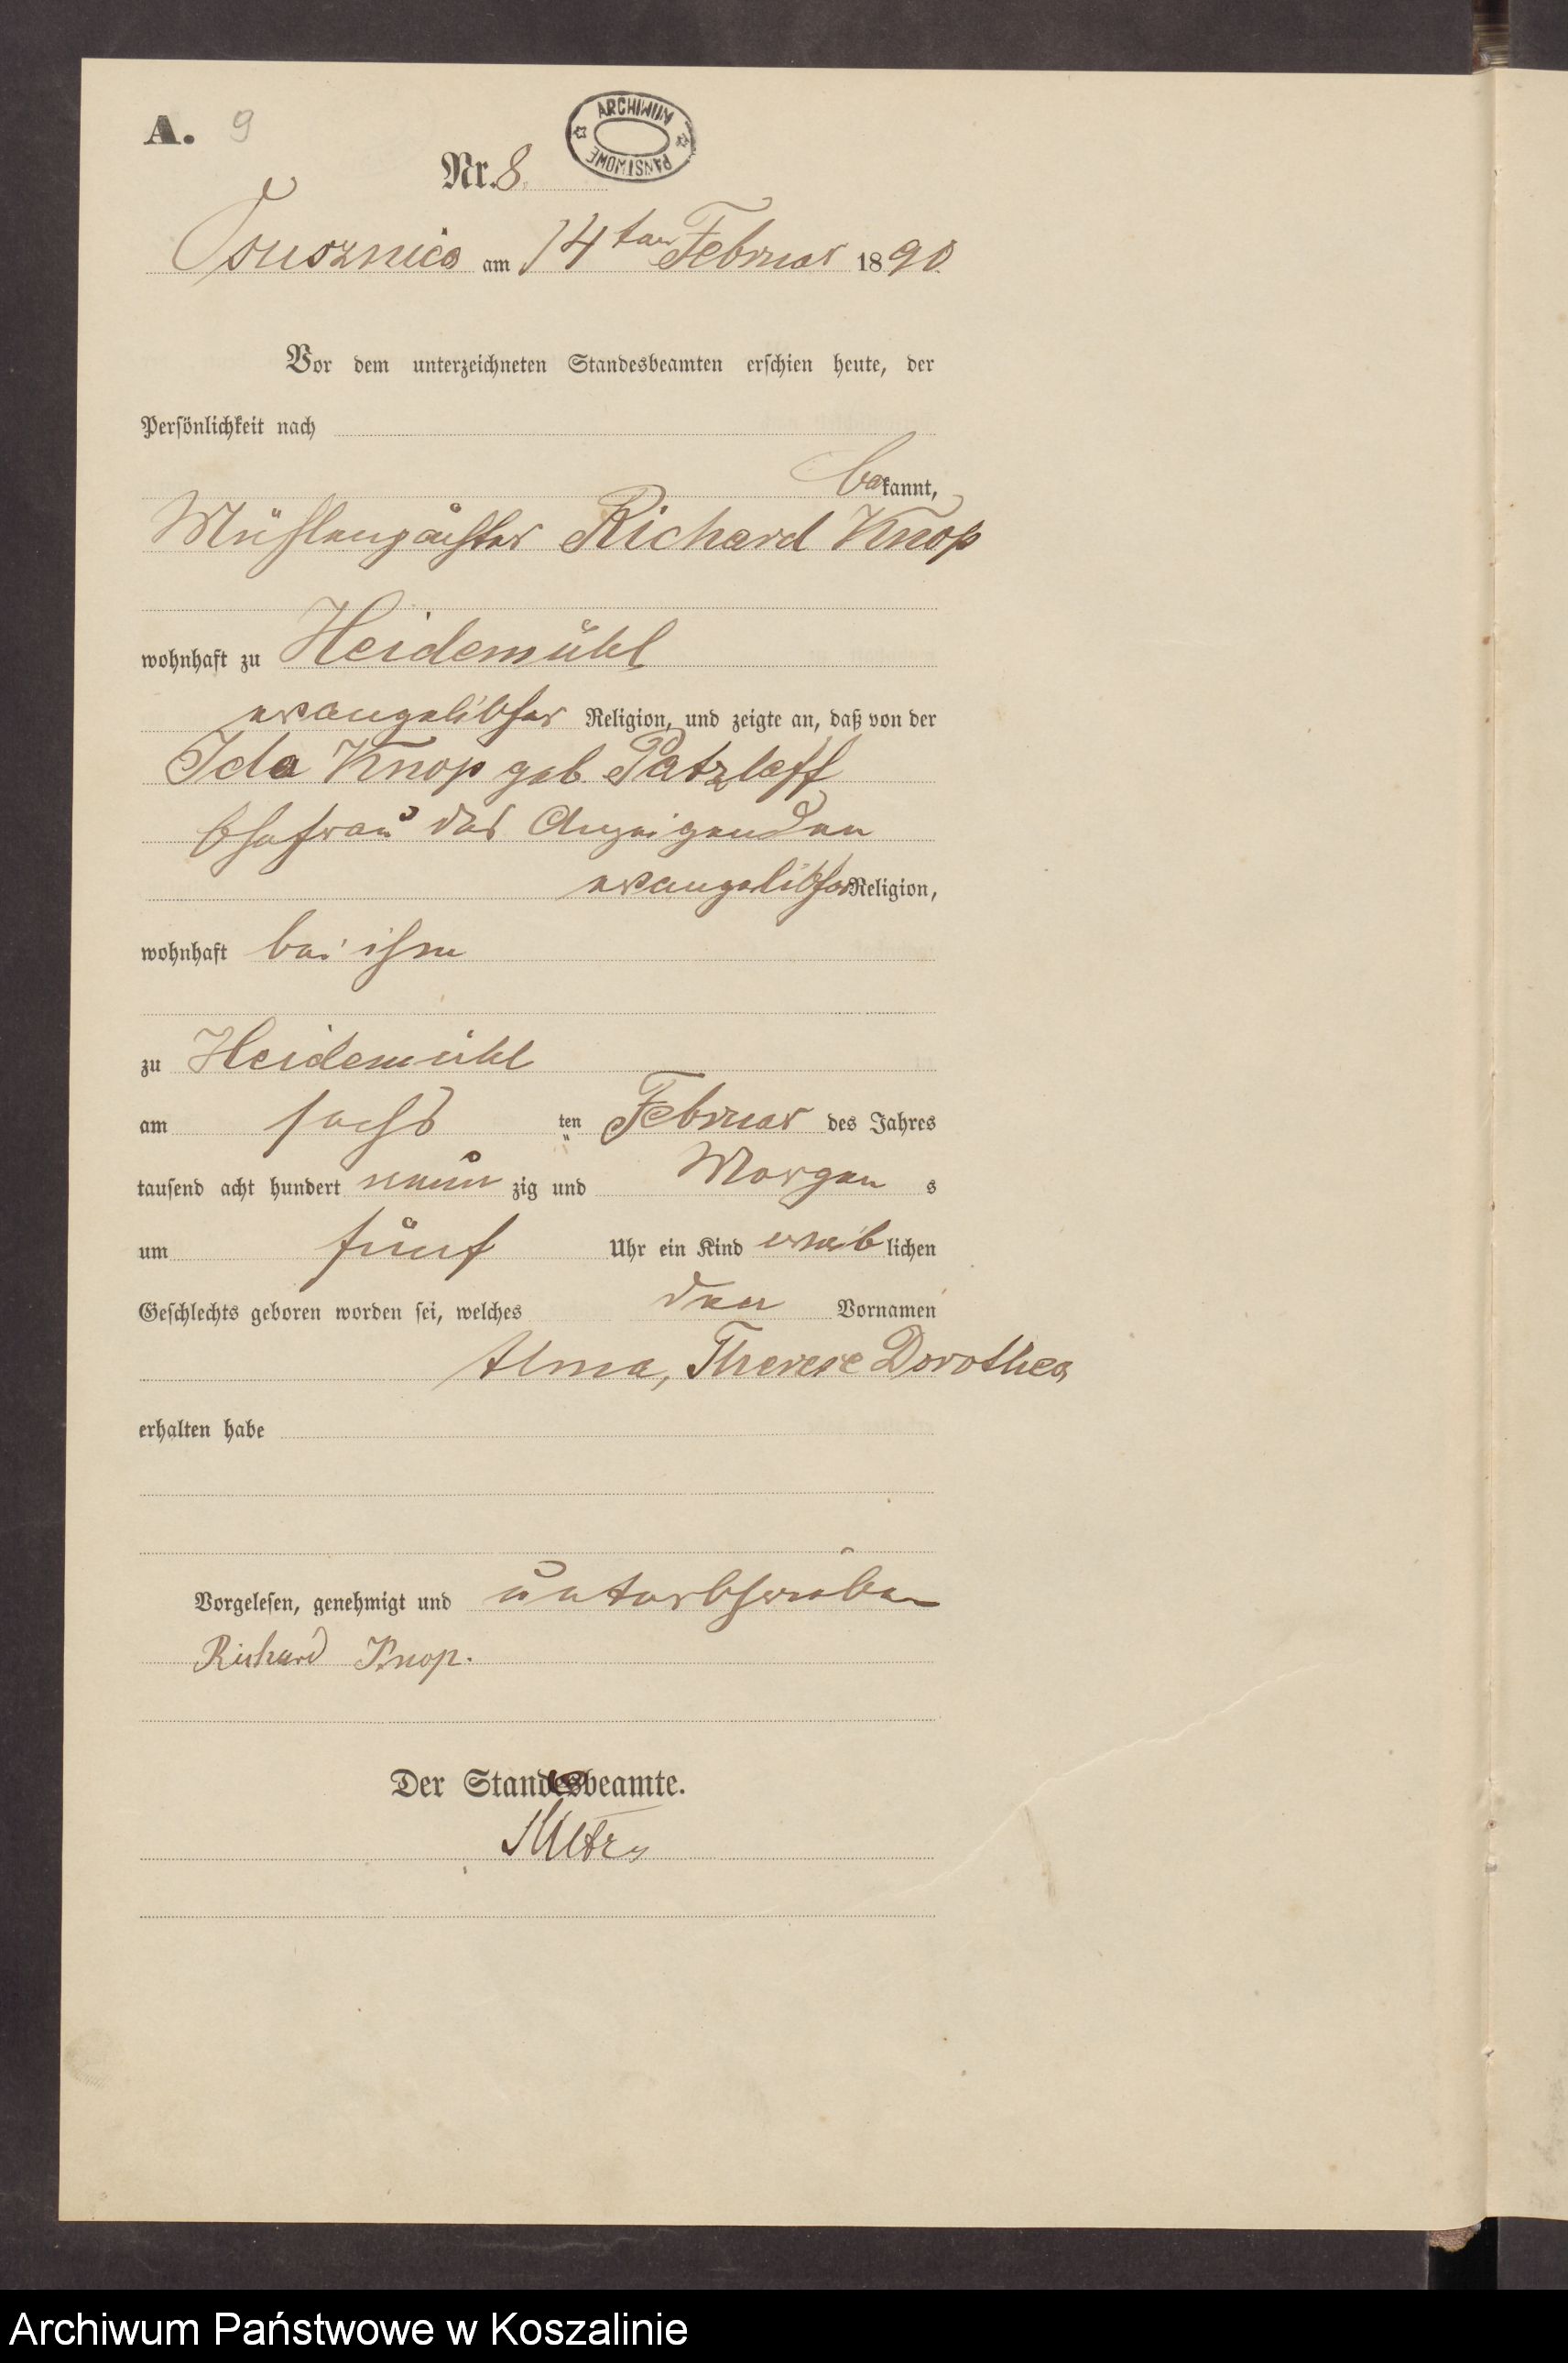 A. 9
ARCHIWUM PAŃSTWOWE
Nr. 8.
am 14ten Februar 1890.
Vor dem unterzeichneten Standesbeamten erschien heute, der
Persönlichkeit nach
bekannt,
Mühlenpächter Richard Knop
wohnhaft zu Heidemühl
evangelischer Religion, und zeigte an, daß von der
Ida Knop geb. Patzlaff
Ehefrau des Anzeigenden
evangelischer Religion,
wohnhaft bei ihm
zu Heidemühl
am sechs ten Februar des Jahres
tausend acht hundert neun zig und Morgen s
um fünf Uhr ein Kind weib lichen
Geschlechts geboren worden sei, welches den Vornamen
Alma, Therese Dorothea
erhalten habe
Vorgelesen, genehmigt und unterschrieben
Richard Knop.
Der Standesbeamte.
Archiwum Państwowe w Koszalinie